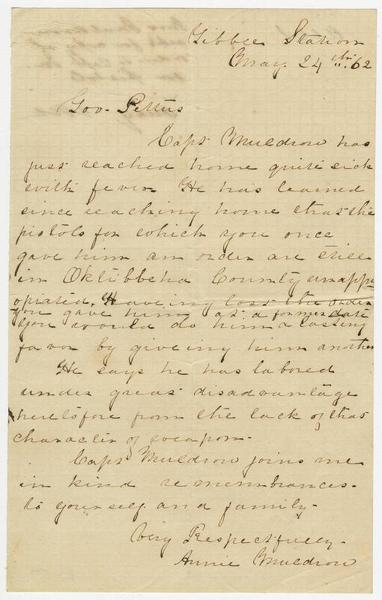 Tibbee Station
May 24th. 62
Gov. Pettus
Capt Muldrow has
just reached home quite sick
with fever He has learned
since reaching home that the
pistols for which you once
gave him an order are still
in Oktibbeha County unappr
opriated. Haveing lost the order
you gave him at a former date
you would do him a lasting
favor by giveing him another
He says he has labored
under great disadvantage
heretofore from the lack of that
character of weapon.
Capt Muldrow joins me
in kind remembrances
to yourself and family.
Very Respectfully.
Annie Muldrow